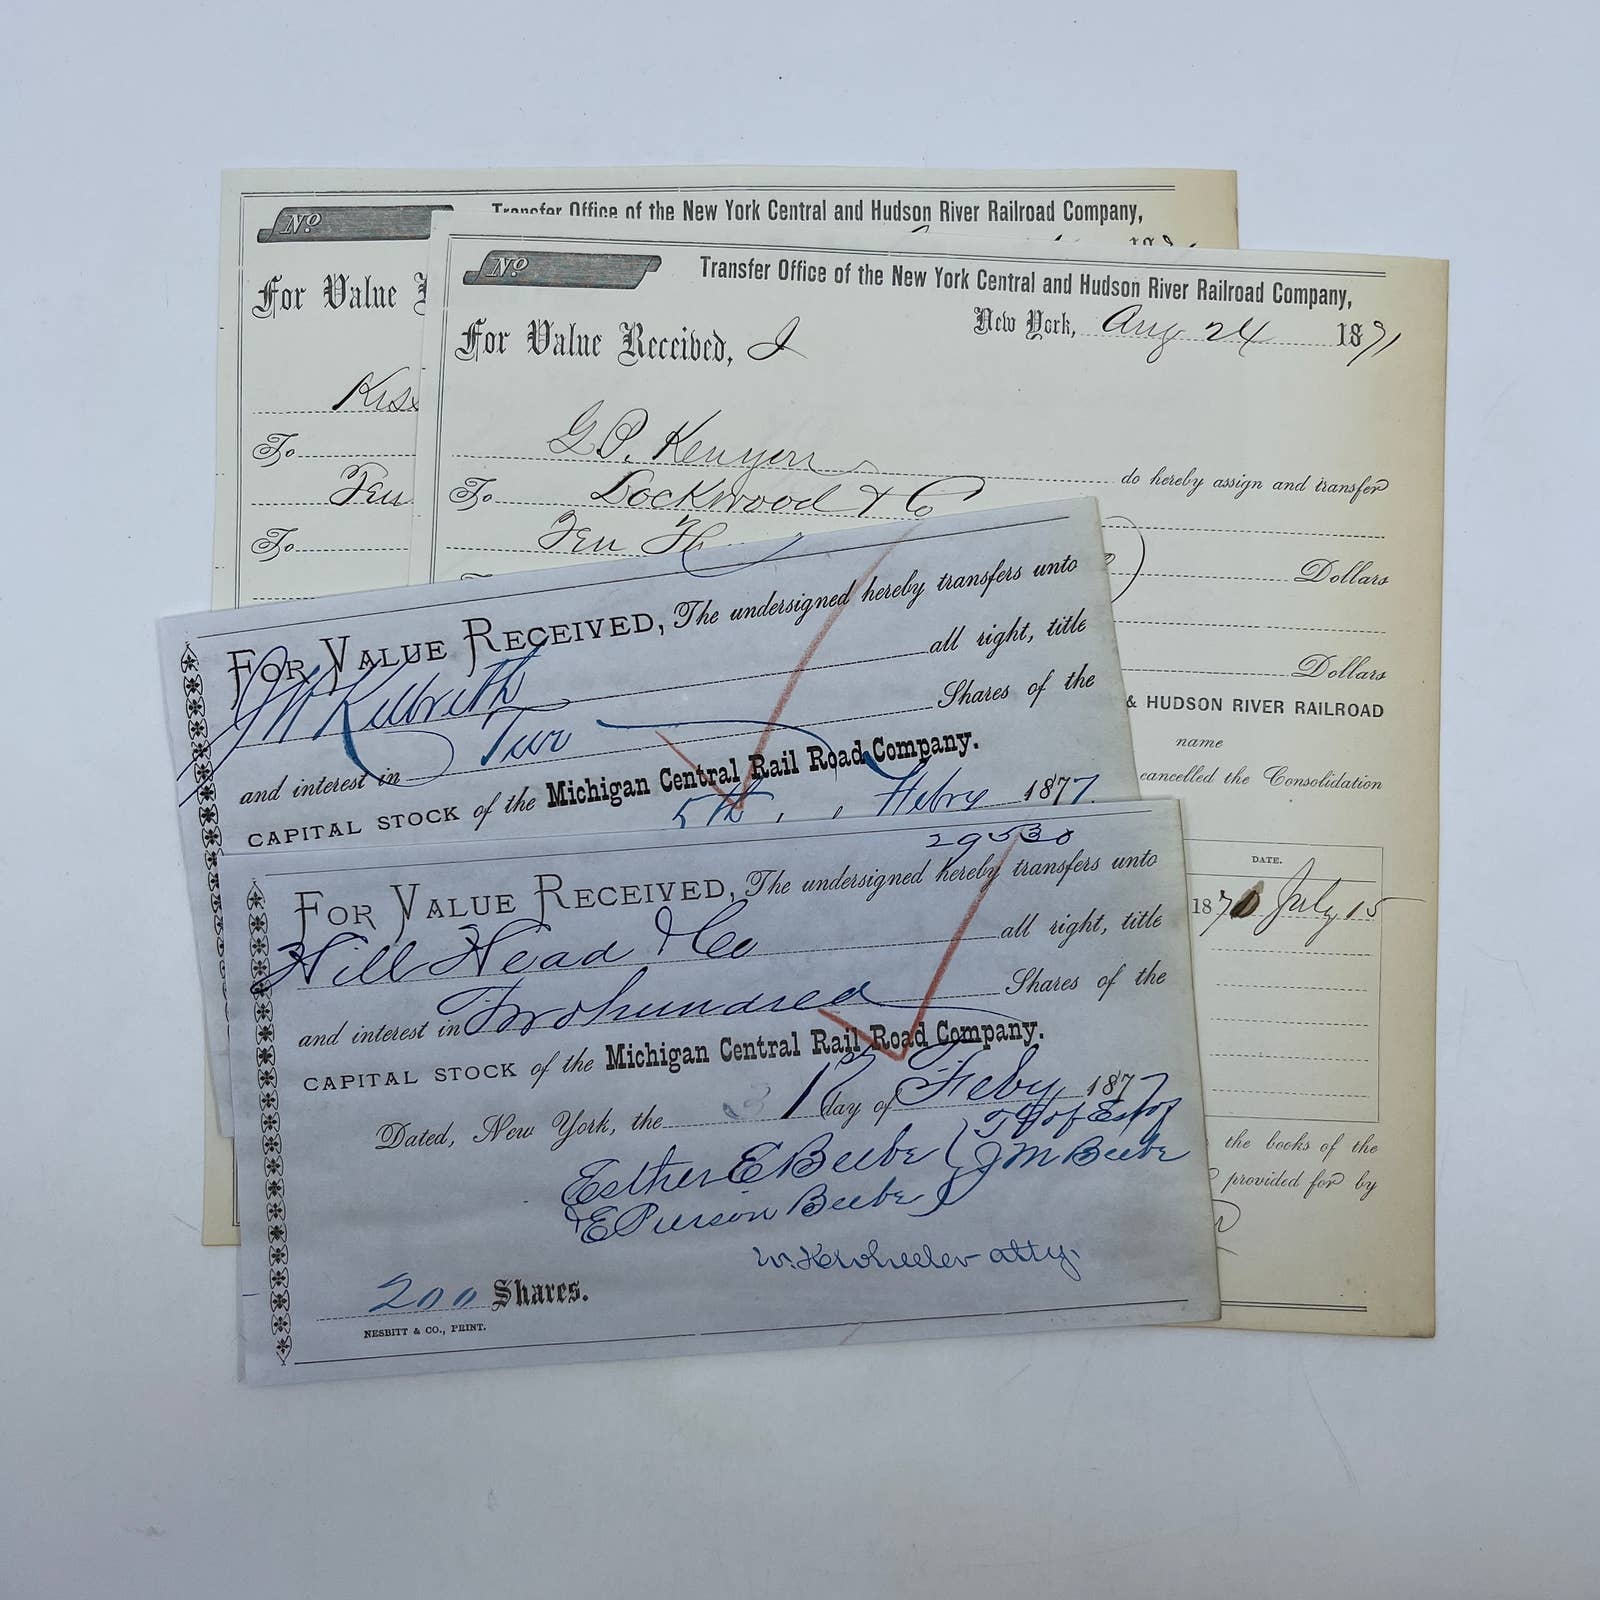 Nº
Transfer Office of the New York Central and Hudson River Railroad Company,
For Value
To
Ten
To
Nº
Transfer Office of the New York Central and Hudson River Railroad Company,
New York, Aug 24 1871
For Value Received, I
G P. Kenyon
do hereby assign and transfer
To Lockwood & Co
Ten
Dollars
Dollars
& HUDSON RIVER RAILROAD
name
cancelled the Consolidation
DATE.
187 July 15
the books of the
provided for by
FOR VALUE RECEIVED, The undersigned hereby transfers unto
all right, title
and interest in Shares of the
CAPITAL STOCK of the Michigan Central Rail Road Company.
5th Feby 1877
29530
FOR VALUE RECEIVED, The undersigned hereby transfers unto
Hill Head & Co all right, title
and interest in Two hundred Shares of the
CAPITAL STOCK of the Michigan Central Rail Road Company.
Dated, New York, the day of Feby 1877
Esther E Beebe
J M Beebe
E Pierson Beebe
Wheeler atty.
200 Shares.
NESBITT & CO., PRINT.